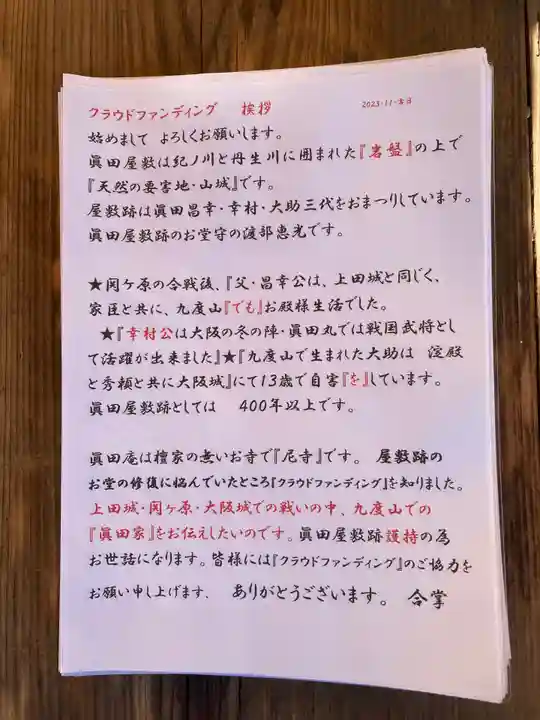 クラウドファンディング 挨拶 2023.11.吉日
始めまして よろしくお願いします。
眞田屋敷は紀ノ川と丹生川に囲まれた『岩盤』の上で
『天然の要害地・山城』です。
屋敷跡は眞田昌幸・幸村・大助三代をおまつりしています。
眞田屋敷跡のお堂守の渡部恵光です。
★関ケ原の合戦後、『父・昌幸公は、上田城と同じく、
家臣と共に、九度山『でも』お殿様生活でした。
★『幸村公は大阪の冬の陣・眞田丸では戦国武将とし
て活躍が出来ました』★『九度山で生まれた大助は 淀殿
と秀頼と共に大阪城』にて13歳で自害『を』しています。
眞田屋敷跡としては 400年以上です。
眞田庵は檀家の無いお寺で『尼寺』です。 屋敷跡の
お堂の修復に悩んでいたところ『クラウドファンディング』を知りました。
上田城・関ヶ原・大阪城での戦いの中、九度山での
『眞田家』をお伝えしたいのです。眞田屋敷跡護持の為
お世話になります。皆様には『クラウドファンディング』のご協力を
お願い申し上げます. ありがとうございます。 合掌